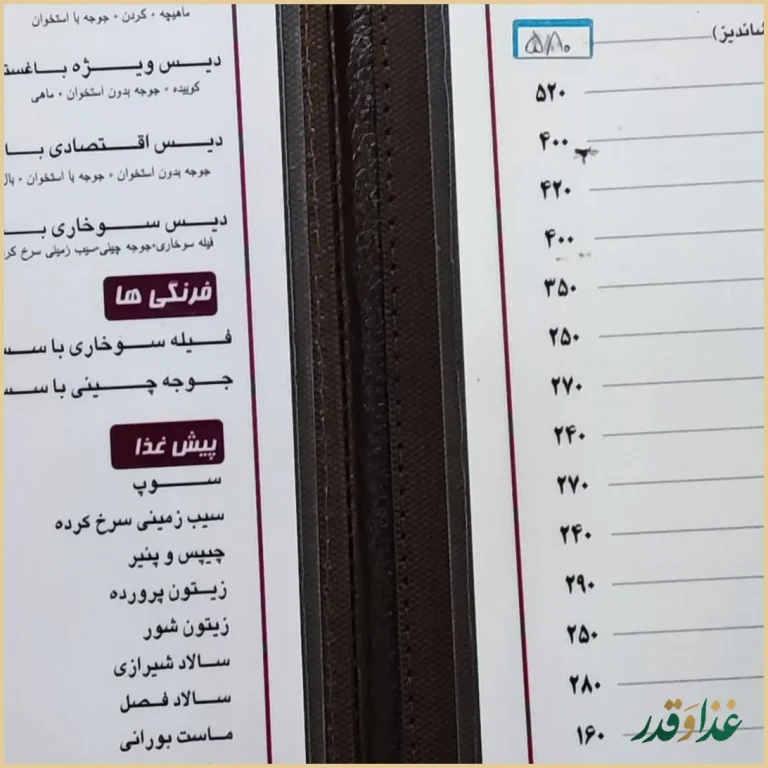 شاندیز)
۵۸۰
۵۲۰
۴۰۰
۴۲۰
۴۰۰
۳۵۰
۲۵۰
۲۷۰
۲۴۰
۲۷۰
۲۴۰
۲۹۰
۲۵۰
۲۸۰
۱۶۰
ماهیچه • گردن • جوجه با استخوان
دیس ویژه باغستـ
کوبیده • جوجه بدون استخوان • ماهی
دیس اقتصادی با
جوجه بدون استخوان • جوجه با استخوان • بال
دیس سوخاری بـ
فیله سوخاری•جوجه چینی•سیب زمینی سرخ کر
فرنگی ها
فیله سوخاری با سـ
جوجه چینی با سـ
پیش غذا
سوپ
سیب زمینی سرخ کرده
چیپس و پنیر
زیتون پرورده
زیتون شور
سالاد شیرازی
سالاد فصل
ماست بورانی
غذا و قدر